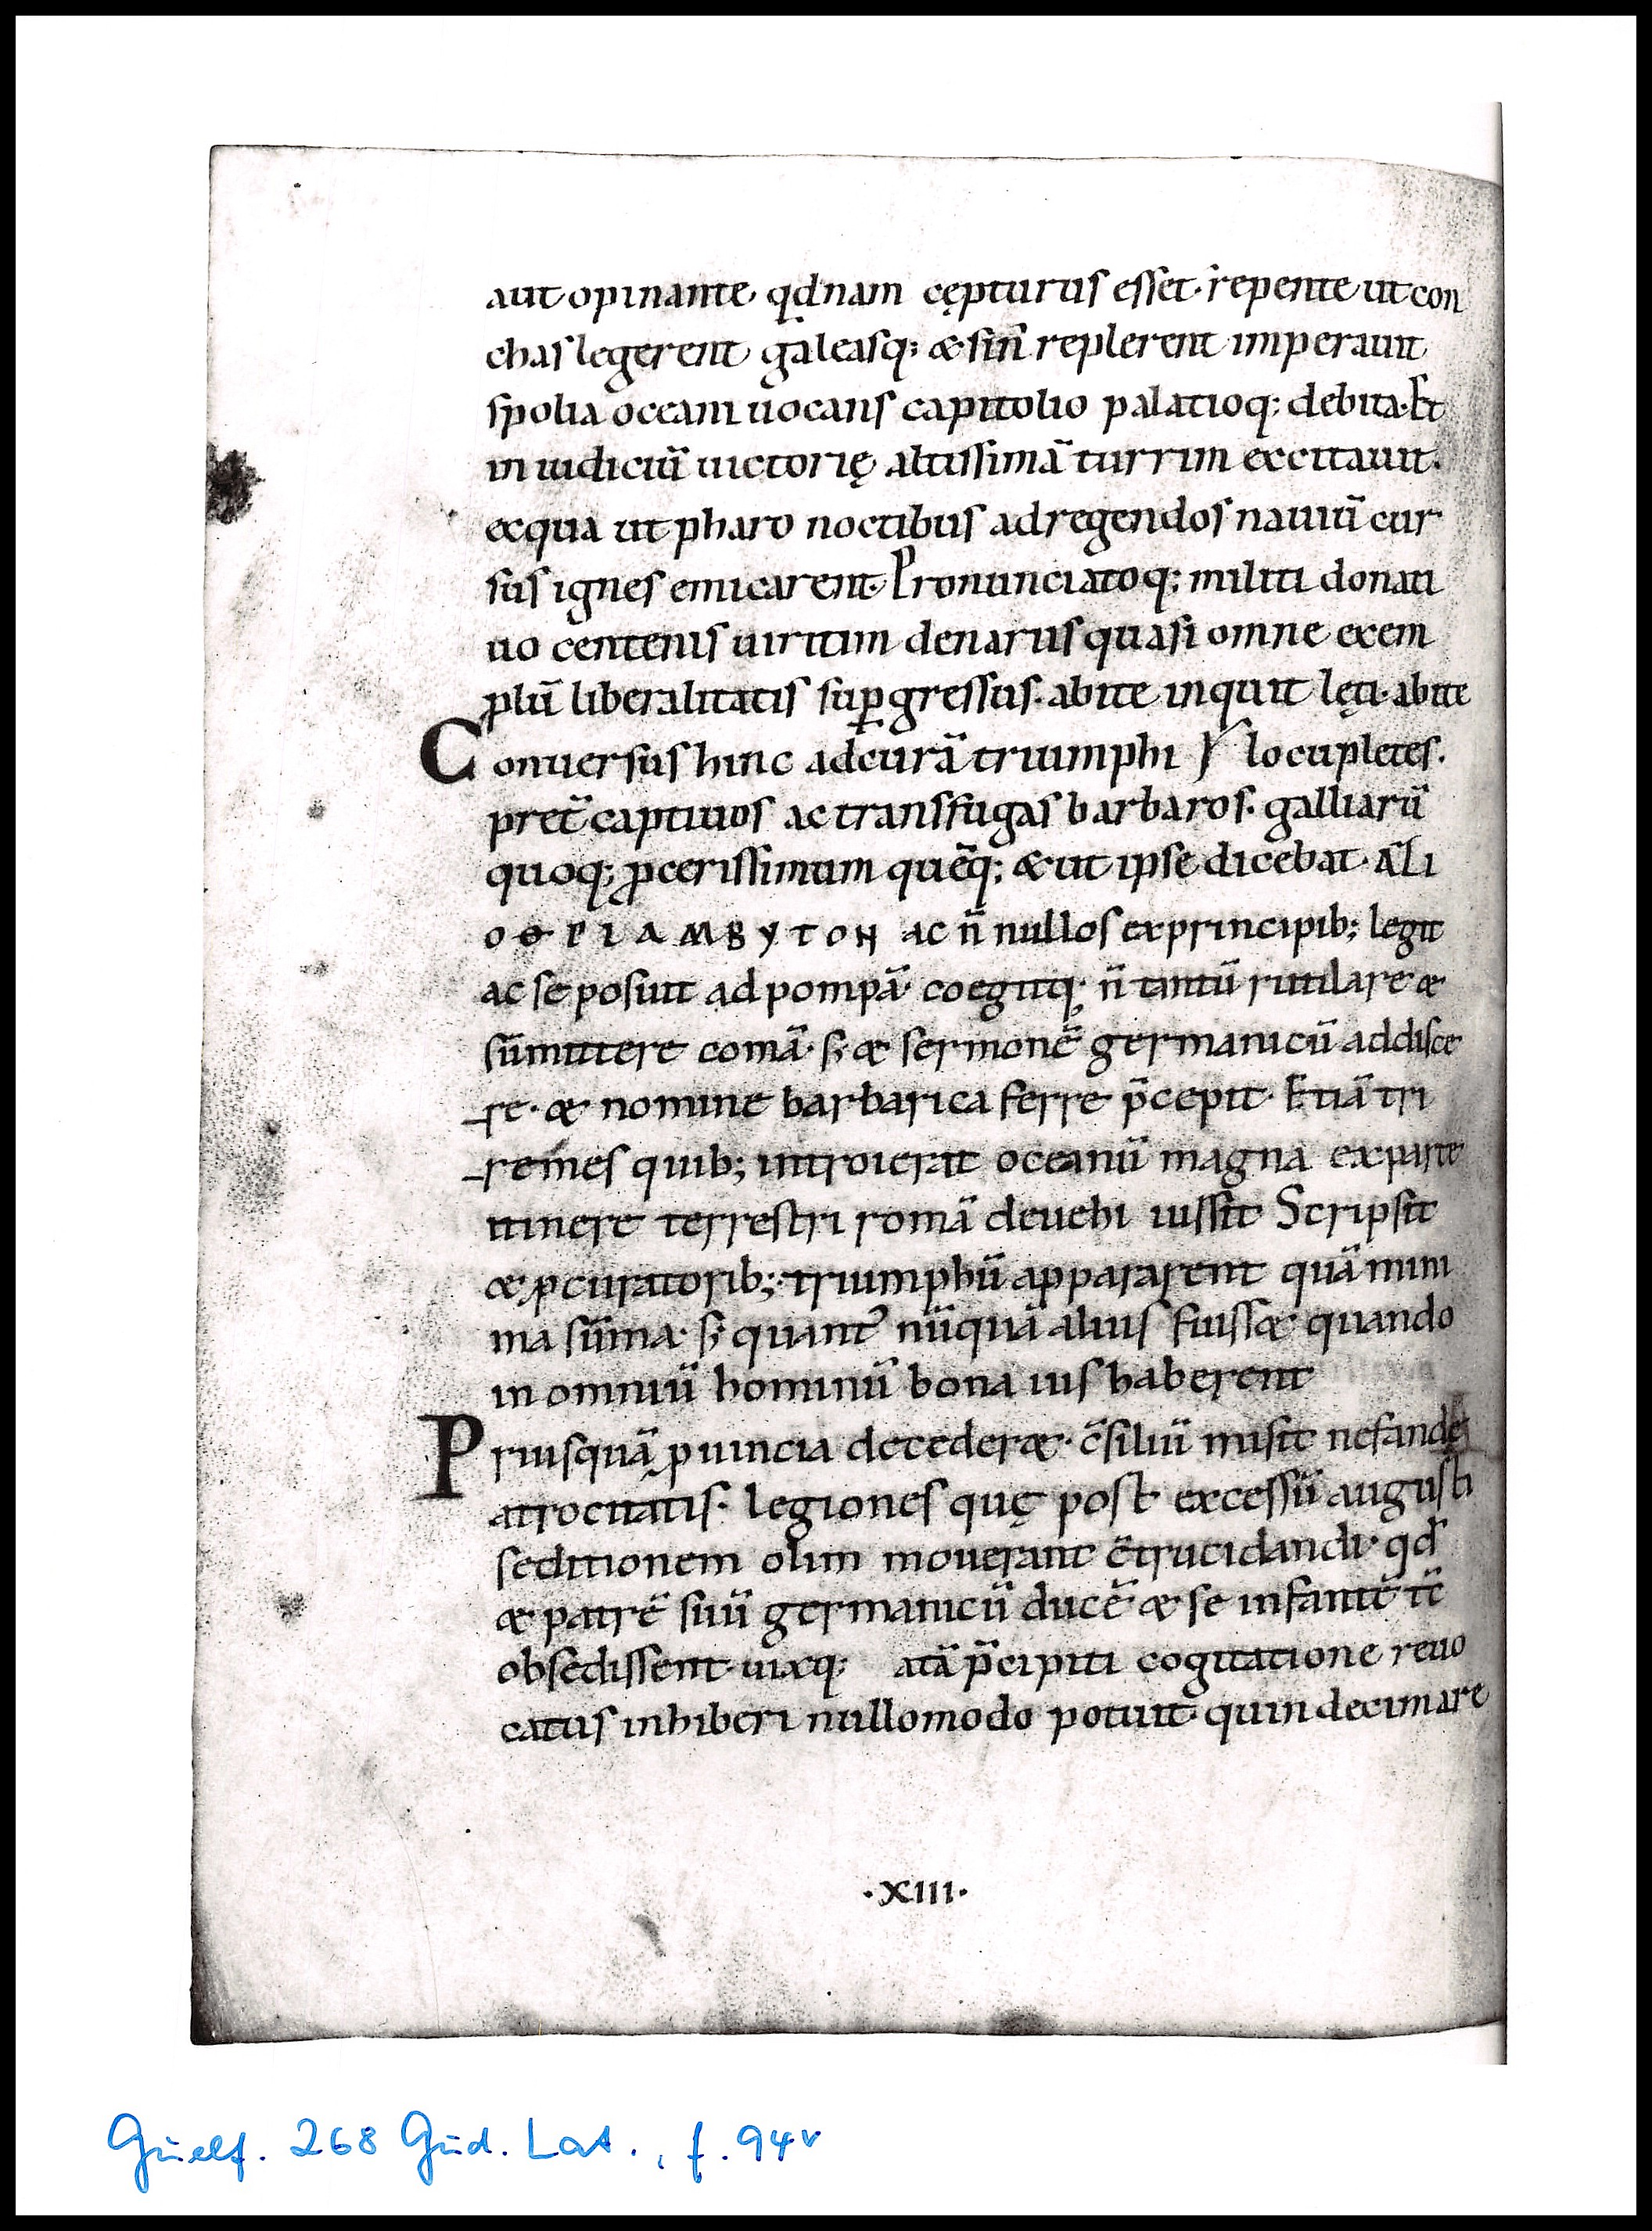 aut opinante· qđnam cępturus esset· repente ut con
chas legerent galeasq; & sin̄ replerent imperauit
spolia oceani uocans capitolio palatioq; debita· Et
in iudiciū uictorię altissimā turrim excitauit·
exqua ut pharo noctibus adregendos nauiū cur
sus ignes emicarent· Pronunciatoq; militi donati
uo centenis uiritim denariis quasi omne exem
plū liberalitatis suꝑgressus· abite inquit lęti· abite
Conuersus hinc adcurā triumphi locupletes·
pret̄ captiuos ac transfugas barbaros· galliarū
quoq; ꝓcerissimum quēq; & ut ipse dicebat· ALI
OΘPIAMBYTON ac n̄ nullos exprincipib; legit
ac se posuit ad pompā· coegitq; n̄ tantū rutilare &
sūmittere comā· s; & sermonē germanicū addisce
re· & nomine barbarica ferre p̄cepit· Etiā tri
remes quib; introierat oceanū magna exparte
itinere terrestri romā deuehi iussit Scripsit
& ꝓcuratorib; triumphū appararent quā mini
ma sūma· s; quant᾽ nūquā alius fuiss& quando
in omniū hominū bona ius haberent
Priusquā ꝓuincia deceder&· c̄siliū misit nefandę
atrocitatis· legiones quę post excessū augusti
seditionem olim mouerant c̄trucidandi· qđ
& patrē suū germanicū ducē & se infantē tc̄
obsedissent· uixq; atā p̄cipiti cogitatione reuo
catus inhiberi nullomodo potuit· quin decimare
·XIII·
Guelf. 268 Gud. Lat., f. 94v